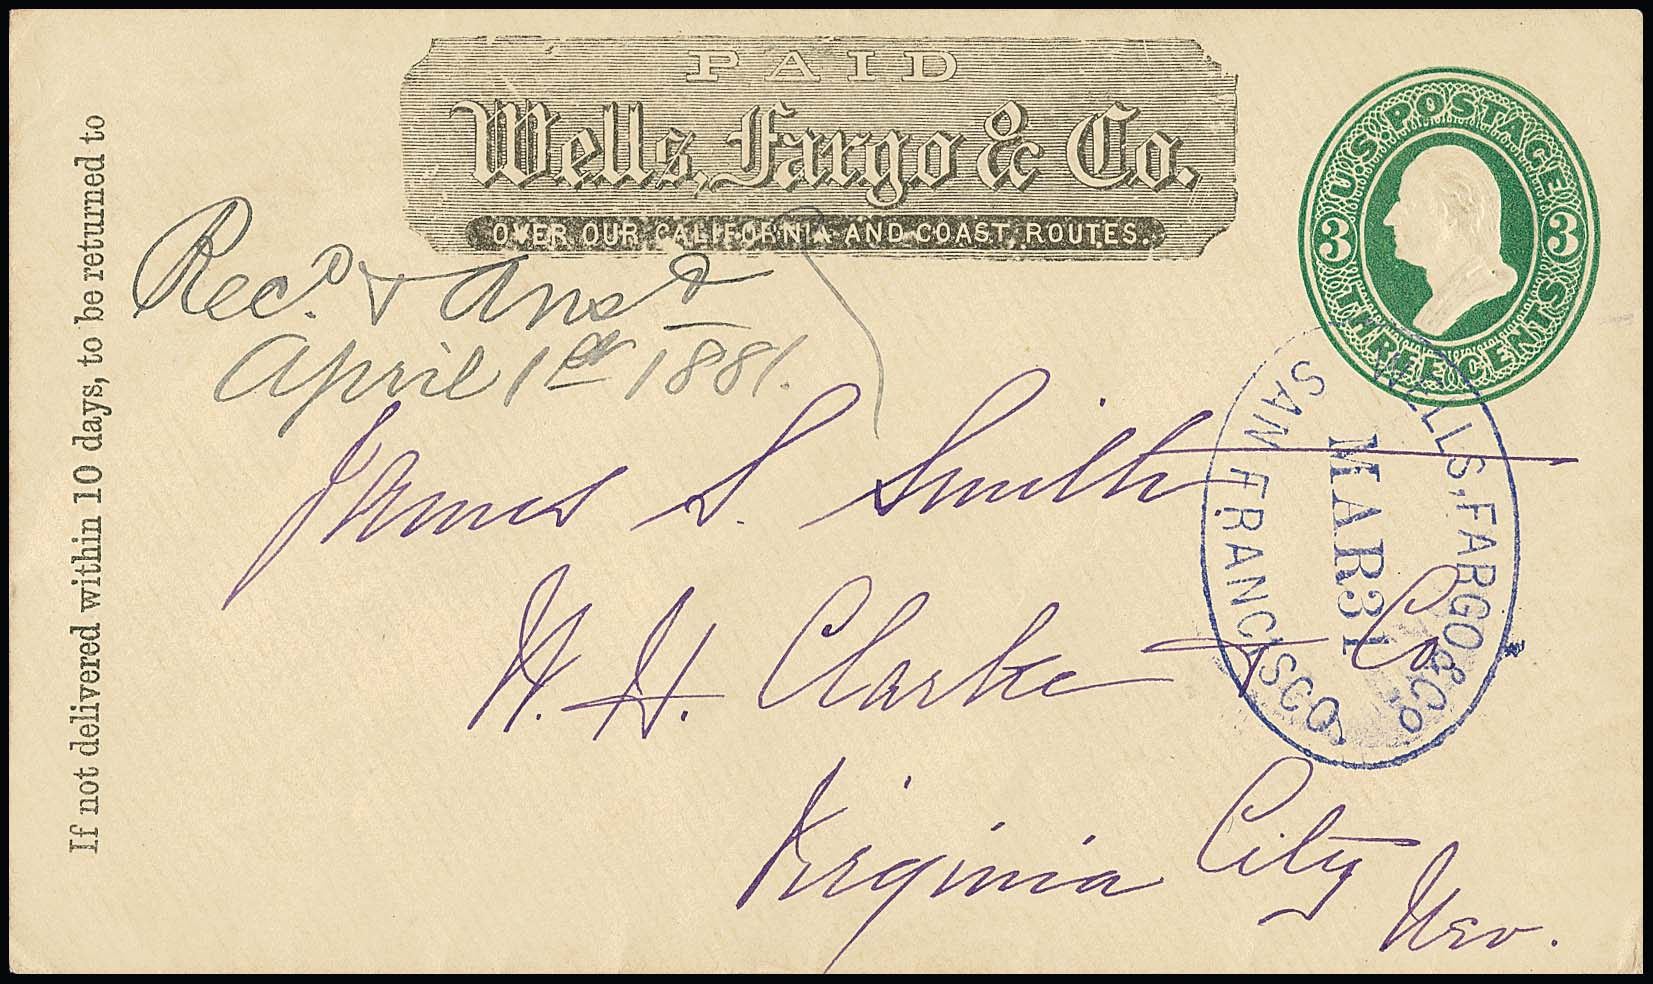 PAID
Wells, Fargo & Co.
OVER OUR CALIFORNIA AND COAST ROUTES.
U.S. POSTAGE
3 3
THREE CENTS
If not delivered within 10 days, to be returned to
Rec.d & Ansd
April 1st 1881.
James S. Smith
W. H. Clarke & Co.
Virginia City
Nev.
WELLS, FARGO & CO.
MAR 31
SAN FRANCISCO.